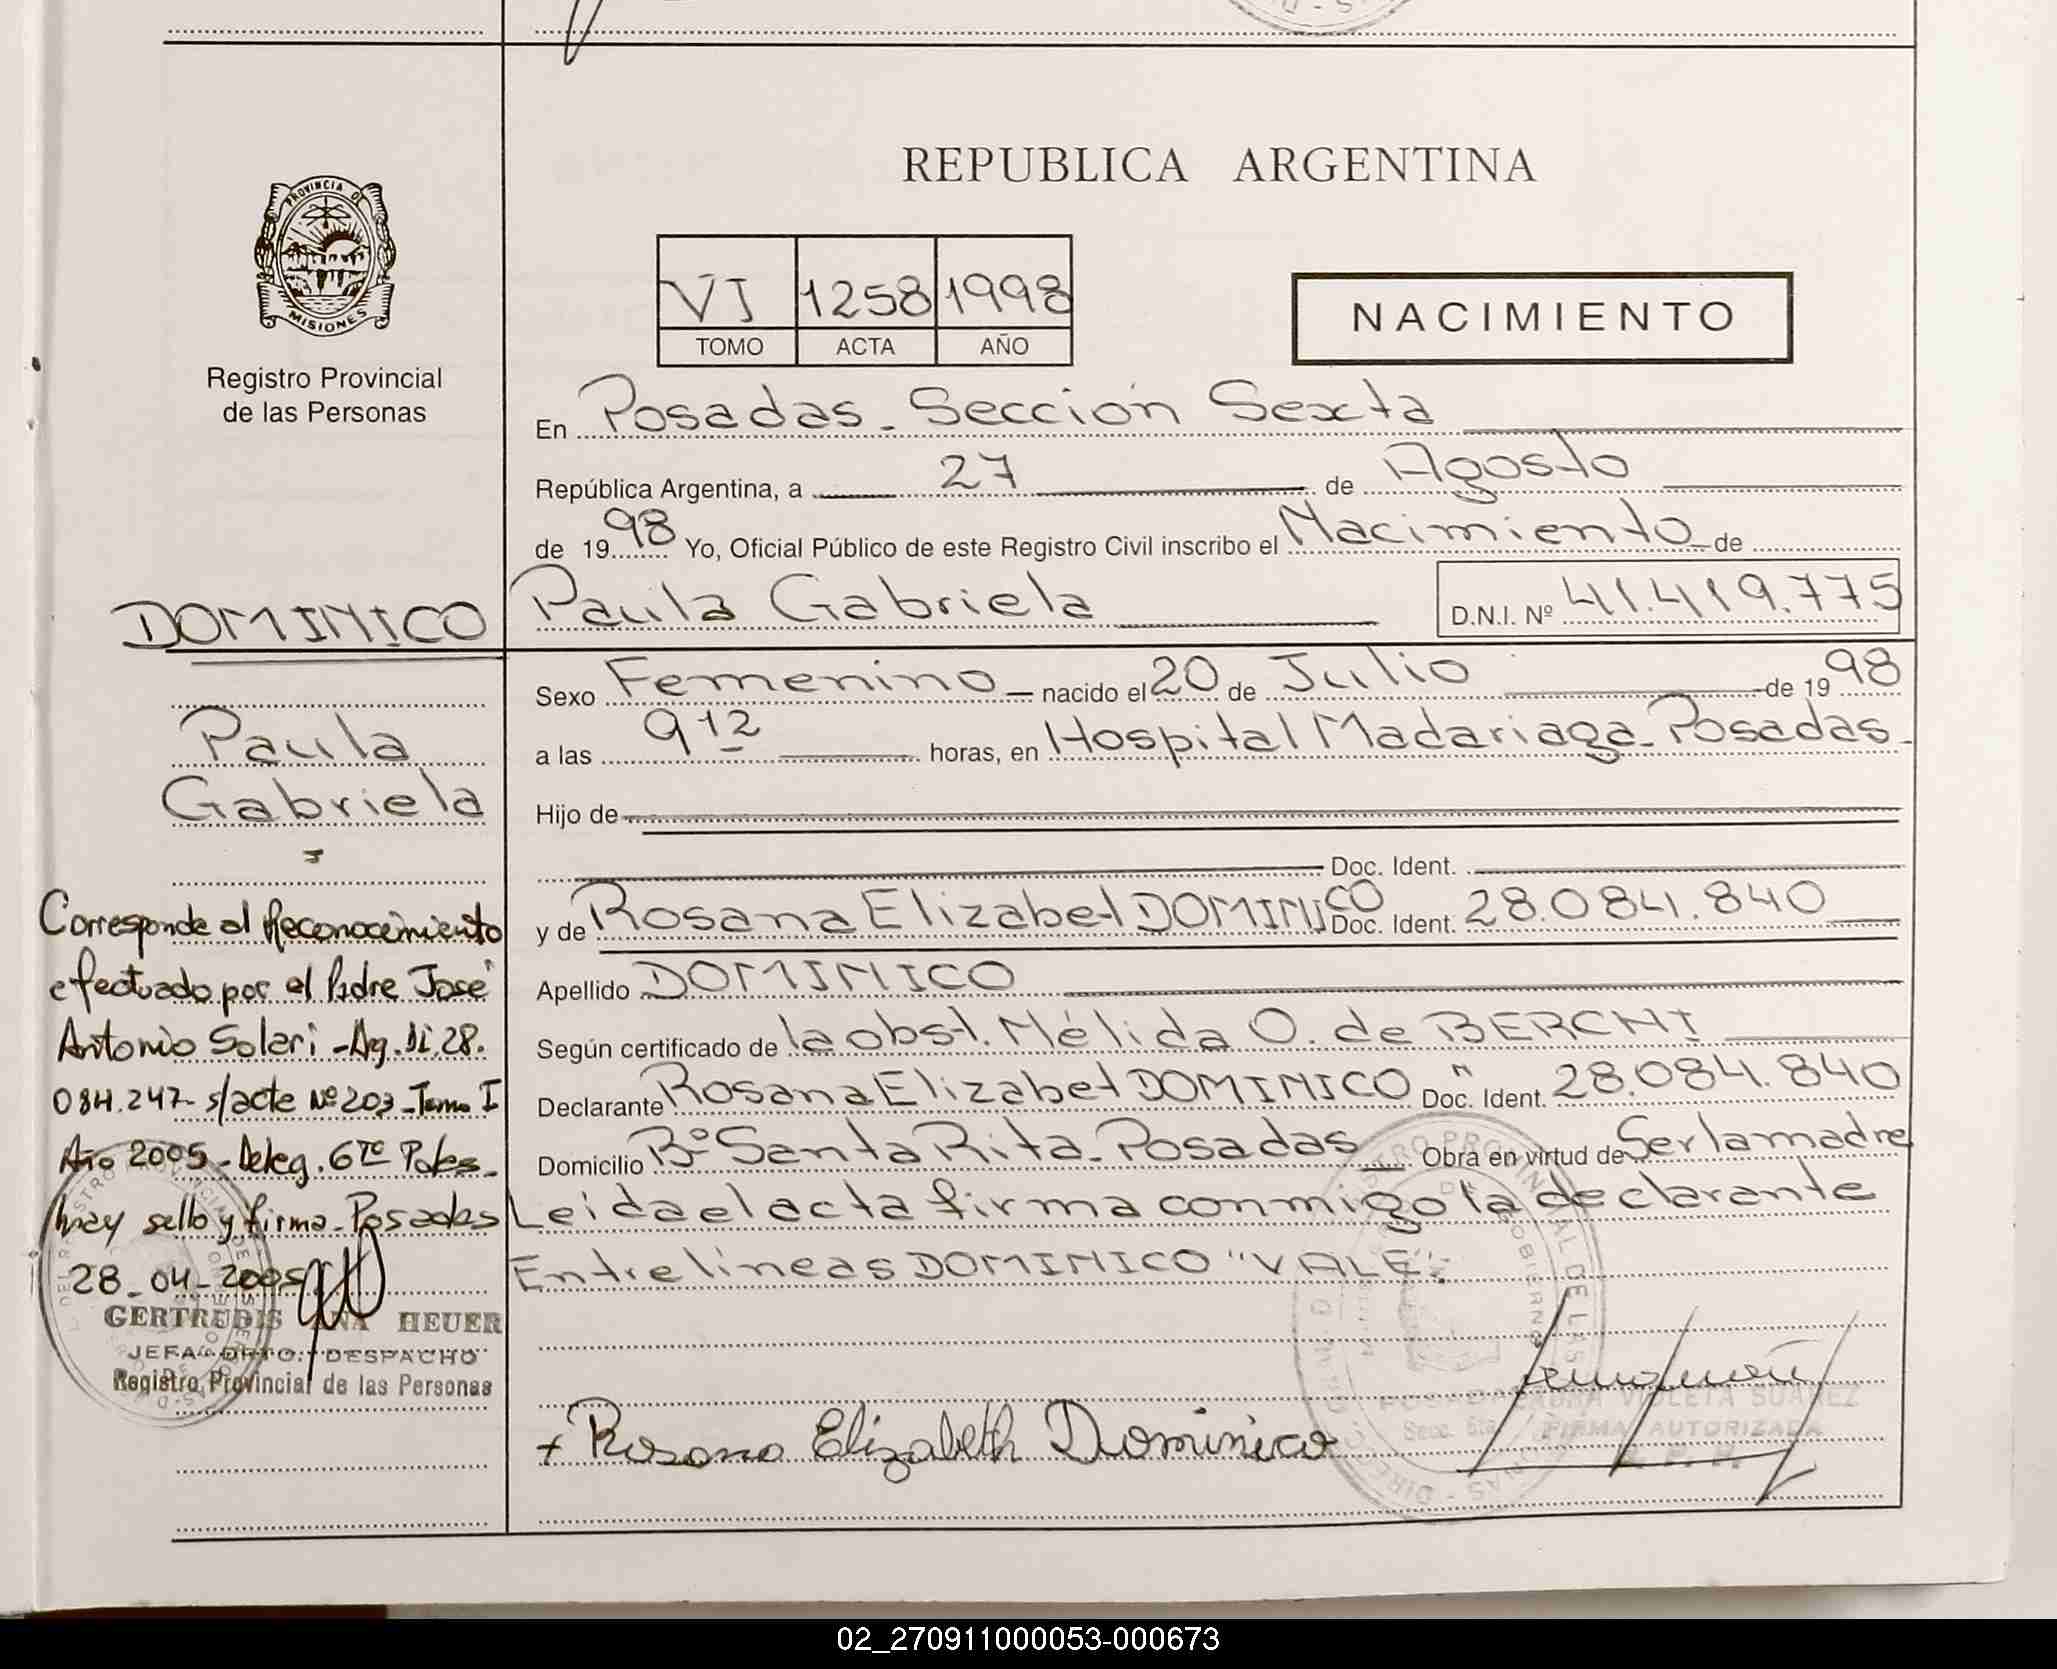 REPUBLICA ARGENTINA
PROVINCIA DE
MISIONES
Registro Provincial
de las Personas
VI 1258 1998
TOMO ACTA AÑO
NACIMIENTO
En Posadas - Sección Sexta
República Argentina, a 27 de Agosto
de 1998 Yo, Oficial Público de este Registro Civil inscribo el Nacimiento de
Paula Gabriela D.N.I. Nº 41.419.775
Sexo Femenino nacido el 20 de Julio de 1998
a las 9 12 horas, en Hospital Madariaga - Posadas -
Hijo de
Doc. Ident.
y de Rosana Elizabet DOMINICO Doc. Ident. 28.084.840
Apellido DOMINICO
Según certificado de la obst. Nélida O. de
Declarante Rosana Elizabet DOMINICO Doc. Ident. 28.084.840
Domicilio Bº Santa Rita - Posadas Obra en virtud de Ser la madre
Leida el acta firma conmigo la declarante
Entre lineas DOMINICO "VALE":
+ Rosana Elizabeth Dominico
VIOLETA SUAREZ
Secc. 6ta.
FIRMA AUTORIZADA
DOMINICO
Paula
Gabriela
Corresponde al Reconocimiento
efectuado por el Padre José
Antonio Solari - Ag. Di. 28.
084.247 - s/acta Nº 203 - Tomo I
Año 2005 - Deleg. 6ta Pdas -
hay sello y firma - Posadas
28-04-2005
GERTRUDIS ANA HEUER
JEFA DPTO. DESPACHO
Registro Provincial de las Personas
02_270911000053-000673